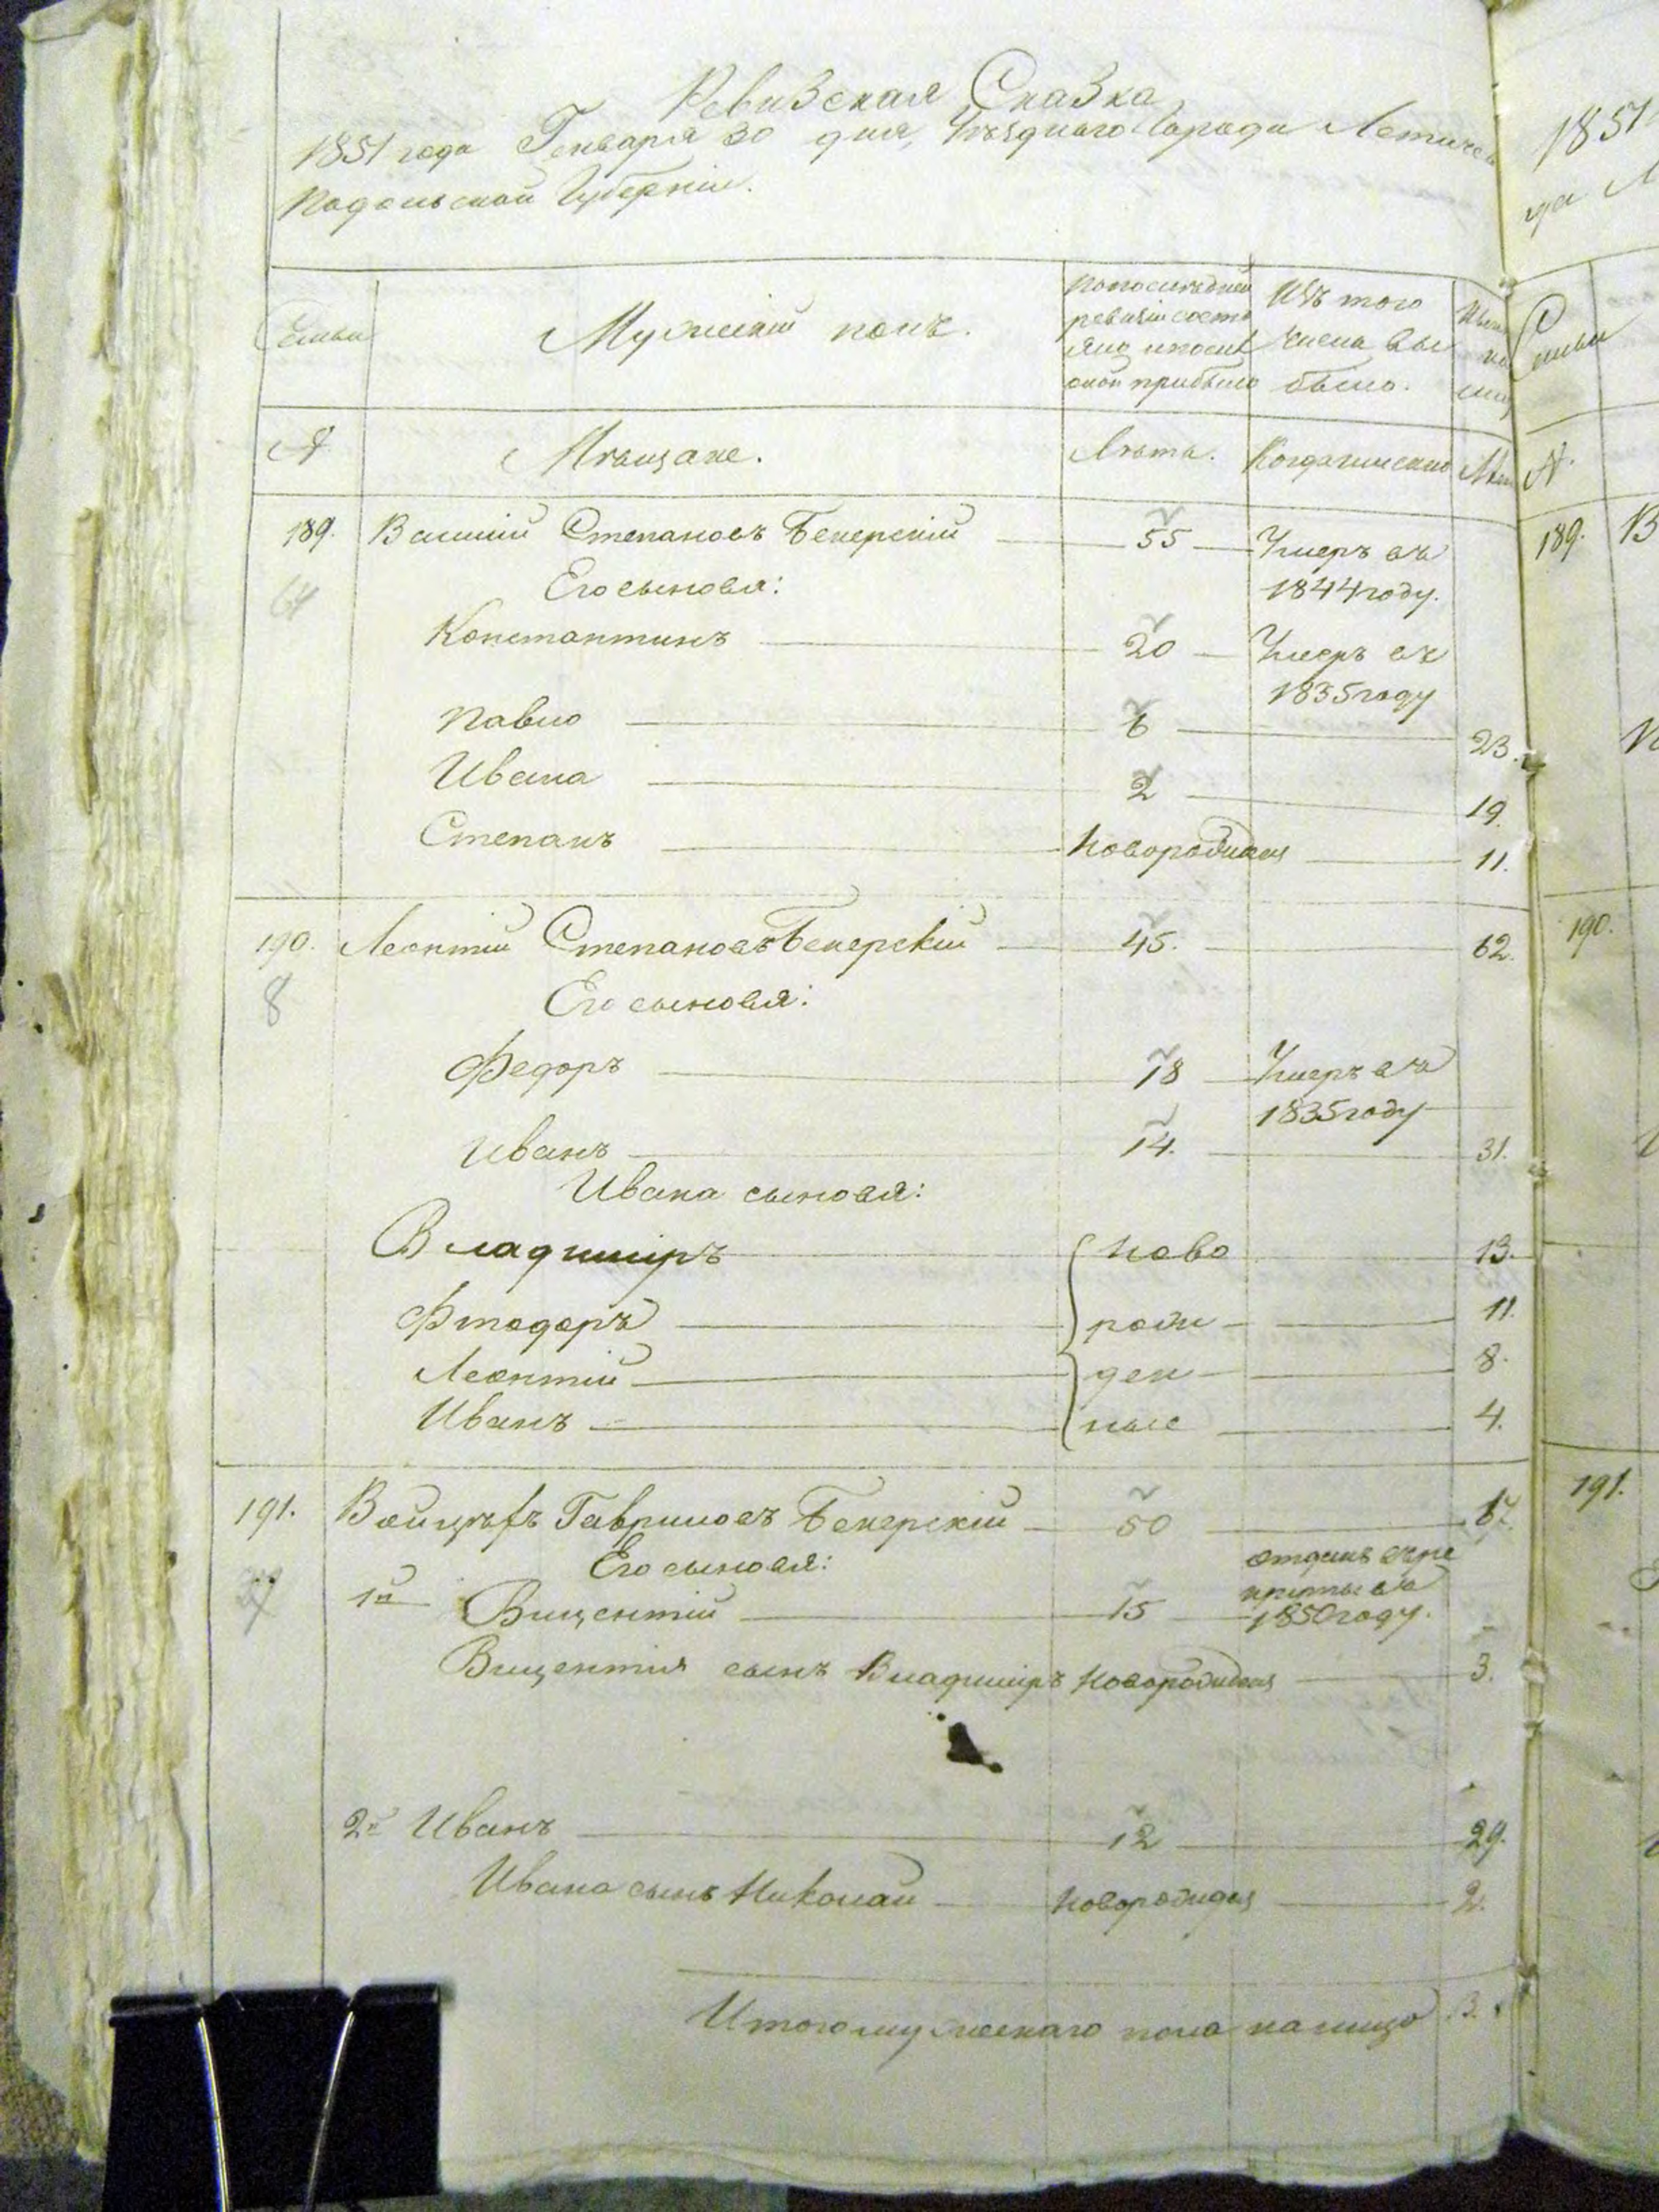 Ревизская Сказка
1851 года Генваря 30 дня, Уѣзднаго Города Летичев
Подольской Губерніи.
Семьи
Мужескій полъ.
По последней ревизіи состо
яло и после
оной прибыло
Изъ того
числа вы
было.
№
Мѣщане.
Лѣта.
Когда именно
189. Василій Степановъ Бекерскій 55 Умеръ въ
64 Его сыновья: 1844 году.
Константинъ 20 Умеръ въ
1835 году
Павло 6 23.
Ивана 2 19.
Степанъ Новорожден 11.
190. Леонтій Степановъ Бекерскій 45. 62.
8 Его сыновья:
Федоръ 18 Умеръ въ
1835 году
Иванъ 14. 31.
Ивана сыновья:
Владиміръ ново 13.
Фтодоръ рож 11.
Леонтій ден 8.
Иванъ ные 4.
191. Войцѣхъ Гавриловъ Бекерскій 50 67.
Его сыновья: отданъ въ ре
круты въ
1й Вицентій 15 1850 году.
Вицентія сынъ Владиміръ Новорожден 3.
2й Иванъ 12 29.
Ивана сынъ Николай Новорожден 2.
Итого мужескаго пола на лицо
1851
да Л
Семьи
№.
189. В
190.
191.